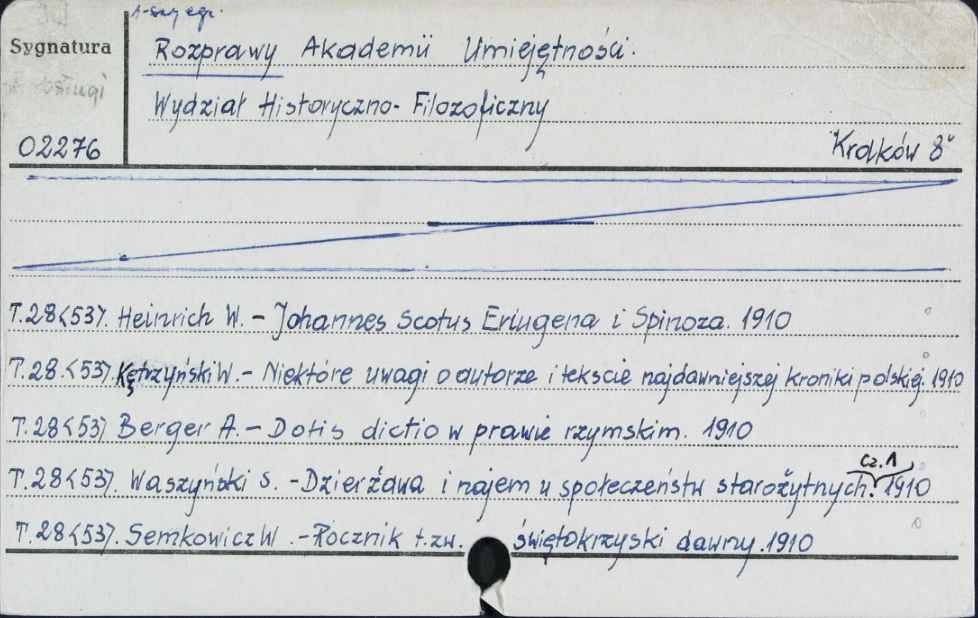 1-szy egz.
Sygnatura
Rozprawy Akademii Umiejętności.
Wydział Historyczno-Filozoficzny
02276
Kraków 8°
T.28<53>. Heinrich W. - Johannes Scotus Eriugena i Spinoza. 1910
T.28.<53> Kętrzyński W. - Niektóre uwagi o autorze i tekscie najdawniejszej kroniki polskiej. 1910
T.28<53> Berger A. - Dotis dictio w prawie rzymskim. 1910
cz.1
T.28<53>. Waszyński S. - Dzierżawa i najem u społeczeństw starożytnych. 1910
T.28<53>. Semkowicz W. - Rocznik t.zw. świętokrzyski dawny. 1910